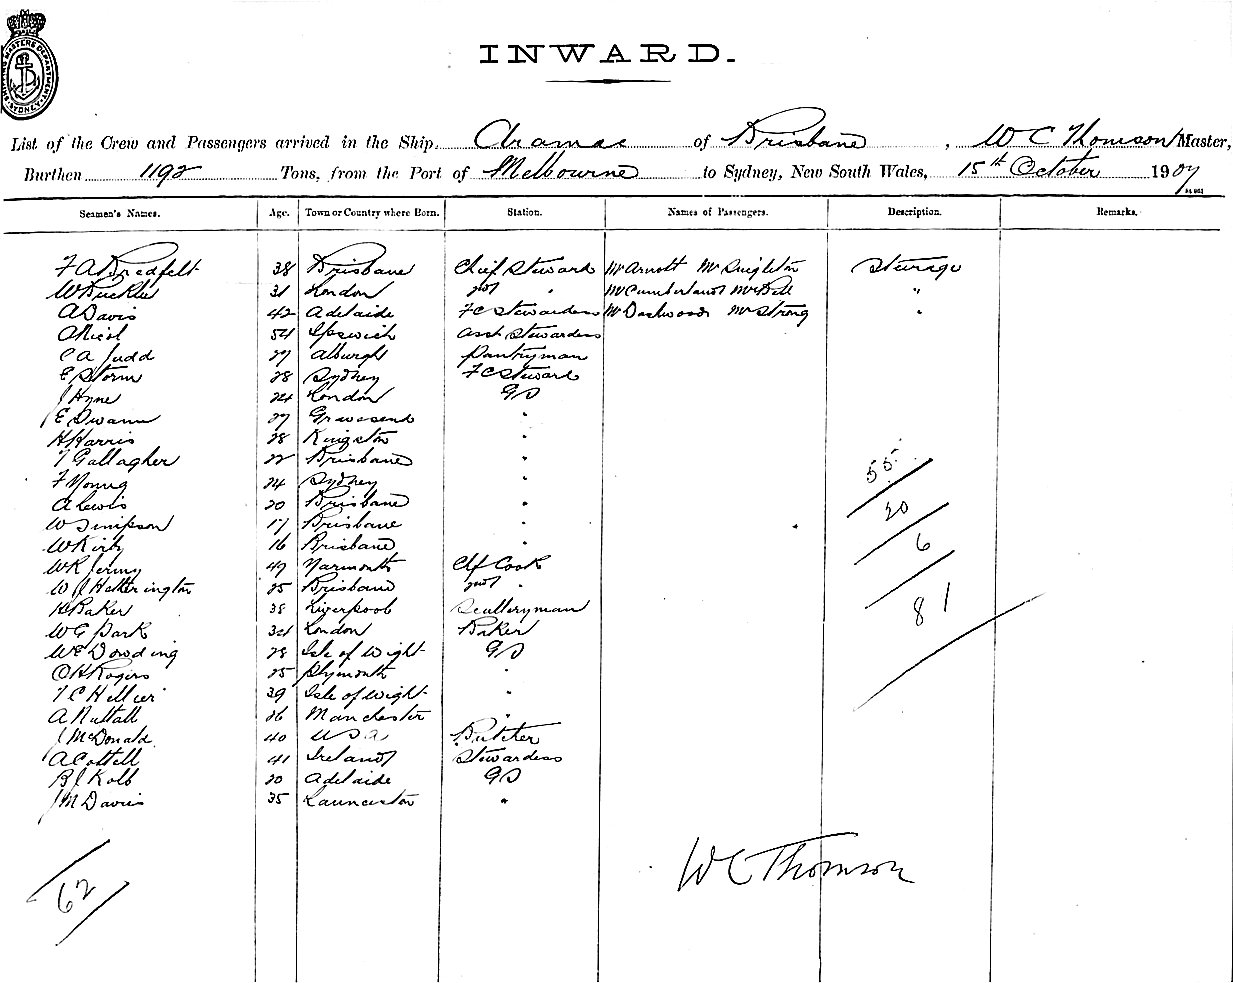 SHIPPING MASTERS DEPARTMENT SYDNEY
INWARD.
List of the Crew and Passengers arrived in the Ship, Aramac of Brisbane, W C Thomson Master,
Burthen 1192 Tons, from the Port of Melbourne to Sydney, New South Wales, 15th October 1907
Seamen's Names. Age. Town or Country where Born. Station. Names of Passengers. Description. Remarks.
F A Bredfelt 38 Brisbane Chief Steward Mr Arnott Mr Knighton Steerage
W Buckle 31 London 2nd " Mr Cumberland Mr Bell "
A Davis 42 Adelaide F C Stewardess Mr Dashwood Mr Strong "
A Nicol 54 Ipswich Asst Stewardess
C A Judd 27 Alburgh Pantryman
E Storm 28 Sydney F C Steward
J Hyne 24 London G S
E Swann 27 Gravesend "
H Harris 28 Kingston "
T Gallagher 22 Brisbane "
F Young 24 Sydney "
A Lewis 20 Brisbane "
W Simpson 17 Brisbane "
W Kirby 16 Brisbane "
W R Jermy 47 Yarmouth Chf Cook
W J Hetherington 25 Brisbane 2nd "
H Baker 38 Liverpool Sculleryman
W G Park 34 London Baker
W E Dowding 28 Isle of Wight G S
O H Rogers 25 Plymouth "
T C Hellier 39 Isle of Wight "
A Nuttall 26 Manchester "
J McDonald 40 U S A Butcher
A Cottell 41 Ireland Stewardess
B J Kolb 20 Adelaide G S
J M Davis 35 Launceston "
55
20
6
81
62
W C Thomson